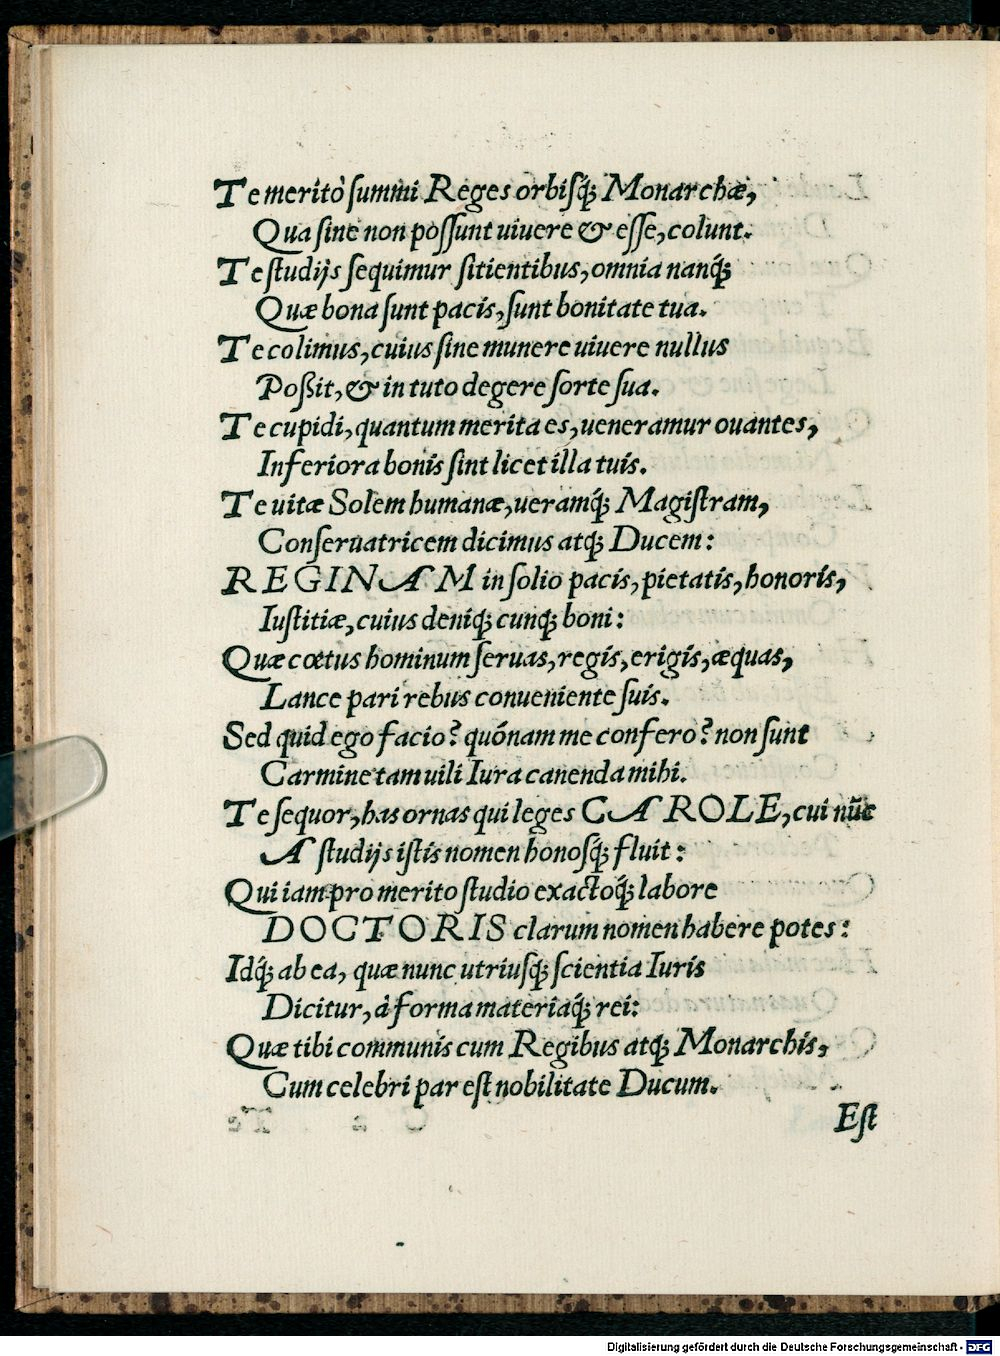 Te meritò ſummi Reges orbiſq́; Monarchæ,
Qua ſine non poſſunt uiuere & eſſe, colunt.
Te ſtudijs ſequimur ſitientibus, omnia nanq́;
Quæ bona ſunt pacis, ſunt bonitate tua.
Te colimus, cuius ſine munere uiuere nullus
Poßit, & in tuto degere ſorte ſua.
Te cupidi, quantum merita es, ueneramur ouantes,
Inferiora bonis ſint licet illa tuis.
Te uitæ Solem humanæ, ueramq́; Magiſtram,
Conſeruatricem dicimus atq́; Ducem:
REGINAM in ſolio pacis, pietatis, honoris,
Iuſtitiæ, cuius deniq́; cunq́; boni:
Quæ cœtus hominum ſeruas, regis, erigis, æquas,
Lance pari rebus conueniente ſuis.
Sed quid ego facio? quónam me confero? non ſunt
Carmine tam uili Iura canenda mihi.
Te ſequor, has ornas qui leges CAROLE, cui nũc
A ſtudijs iſtis nomen honoſq́; fluit:
Qui iam pro merito ſtudio exactoq́; labore
DOCTORIS clarum nomen habere potes:
Idq́; ab ea, quæ nunc utriuſq́; ſcientia Iuris
Dicitur, à forma materiaq́; rei:
Quæ tibi communis cum Regibus atq́; Monarchis,
Cum celebri par eſt nobilitate Ducum.
Eſt
Digitalisierung gefördert durch die Deutsche Forschungsgemeinschaft - DFG